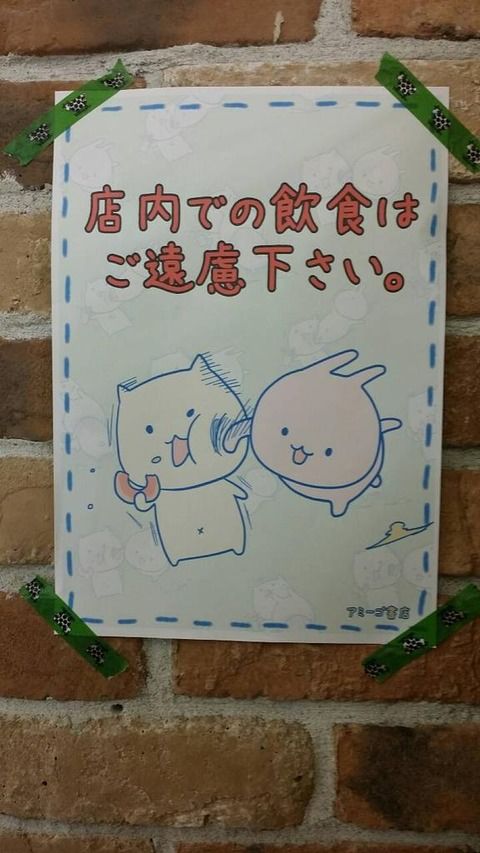 店内での飲食は
ご遠慮下さい。
アミーゴ書店